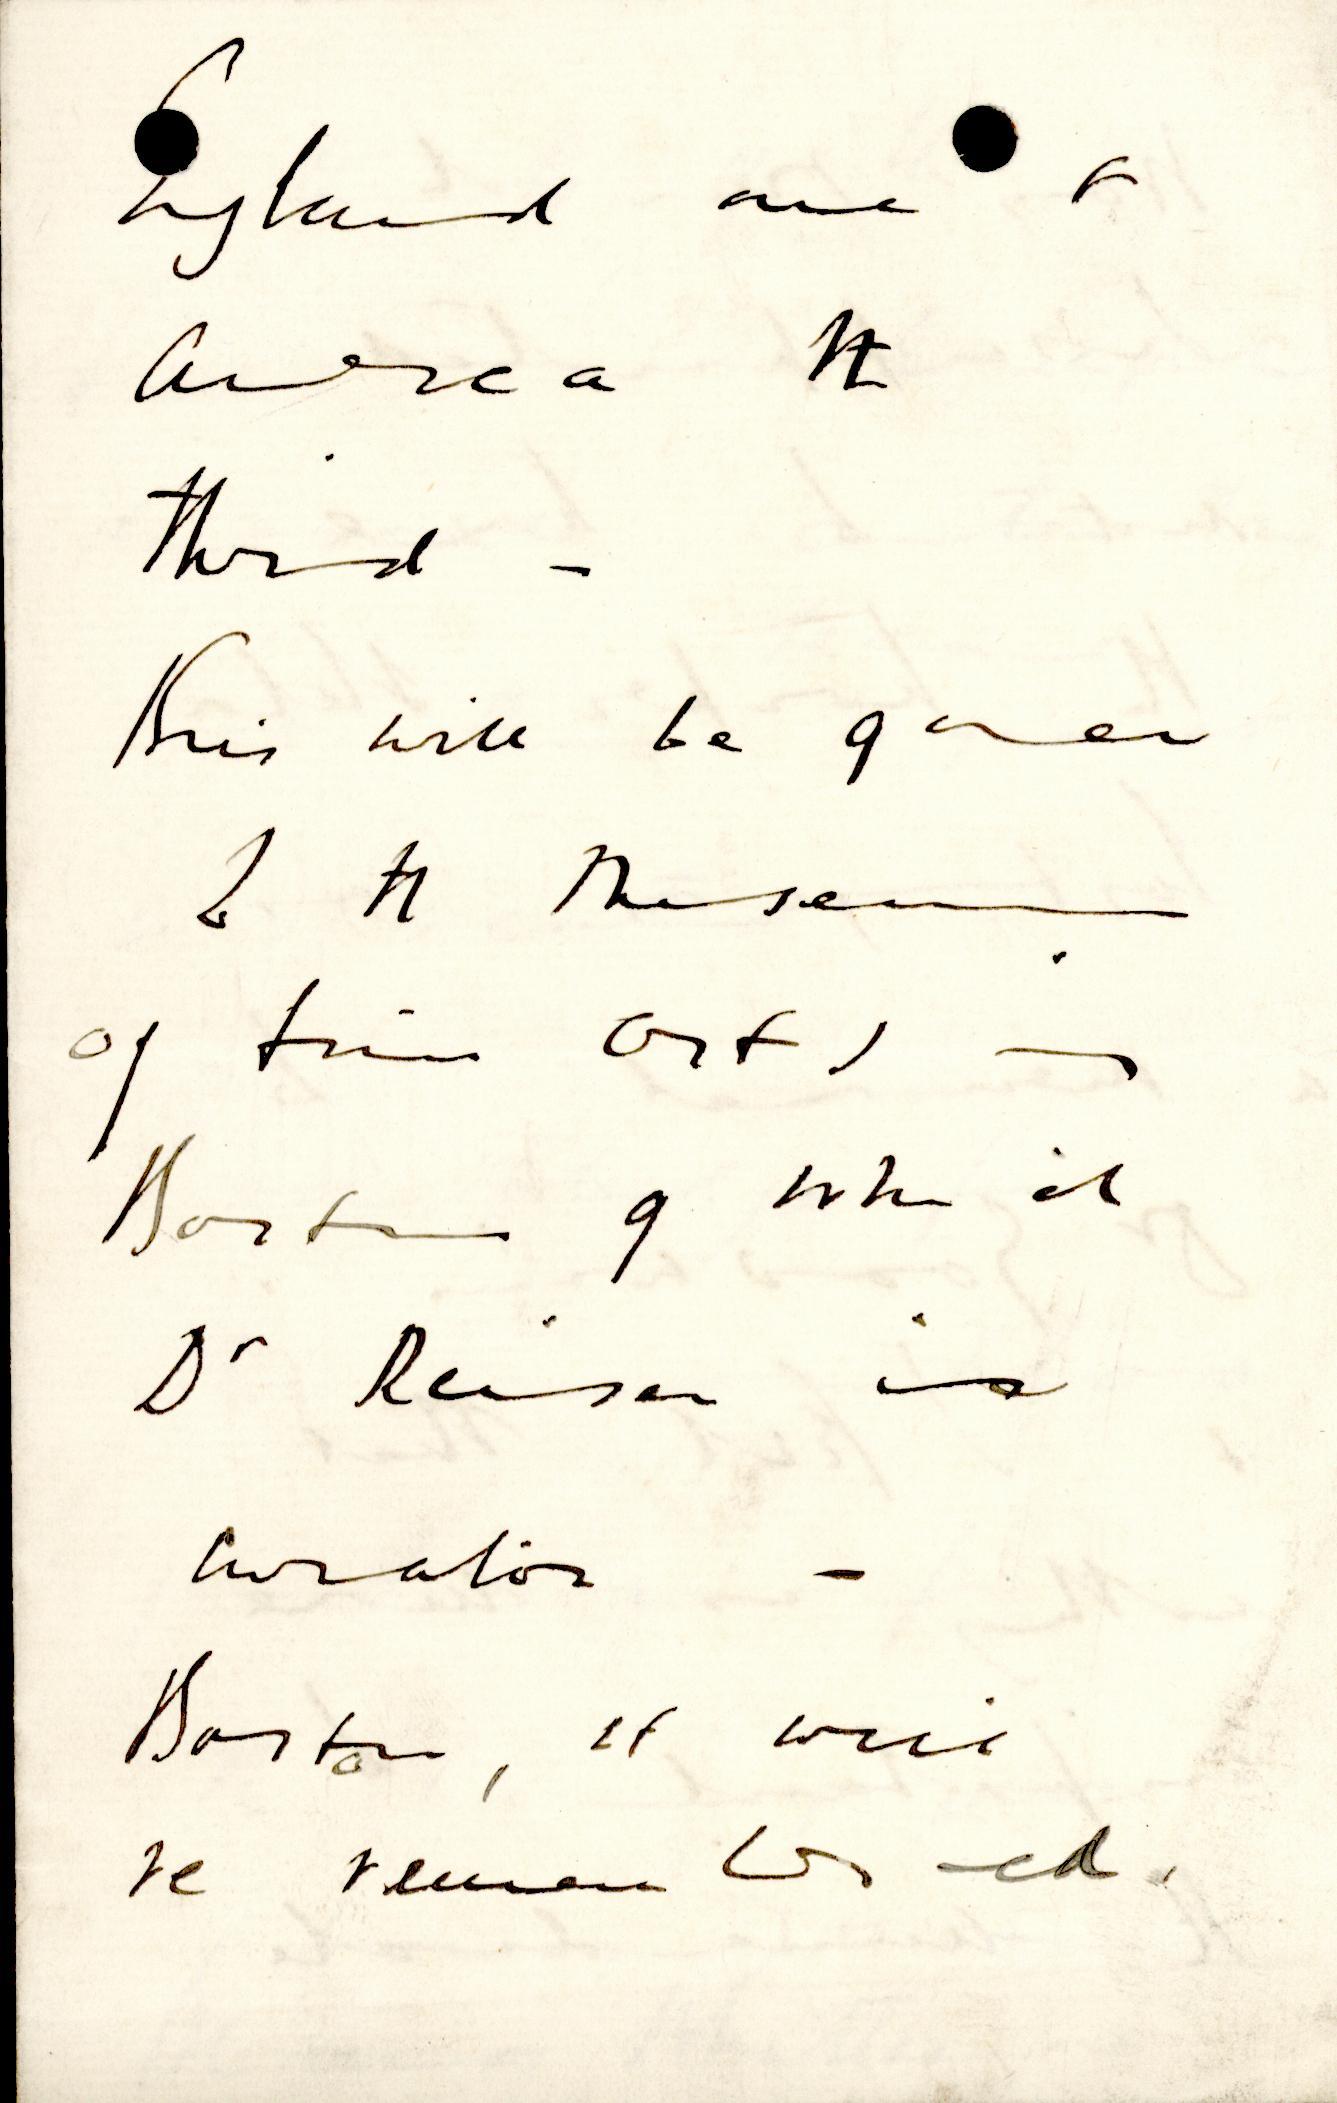 England one &
America the
third -
This will be given
to the Museum
of Fine Arts in
Boston of which
Dr Reisner is
curator -
Boston, it will
be remembered,